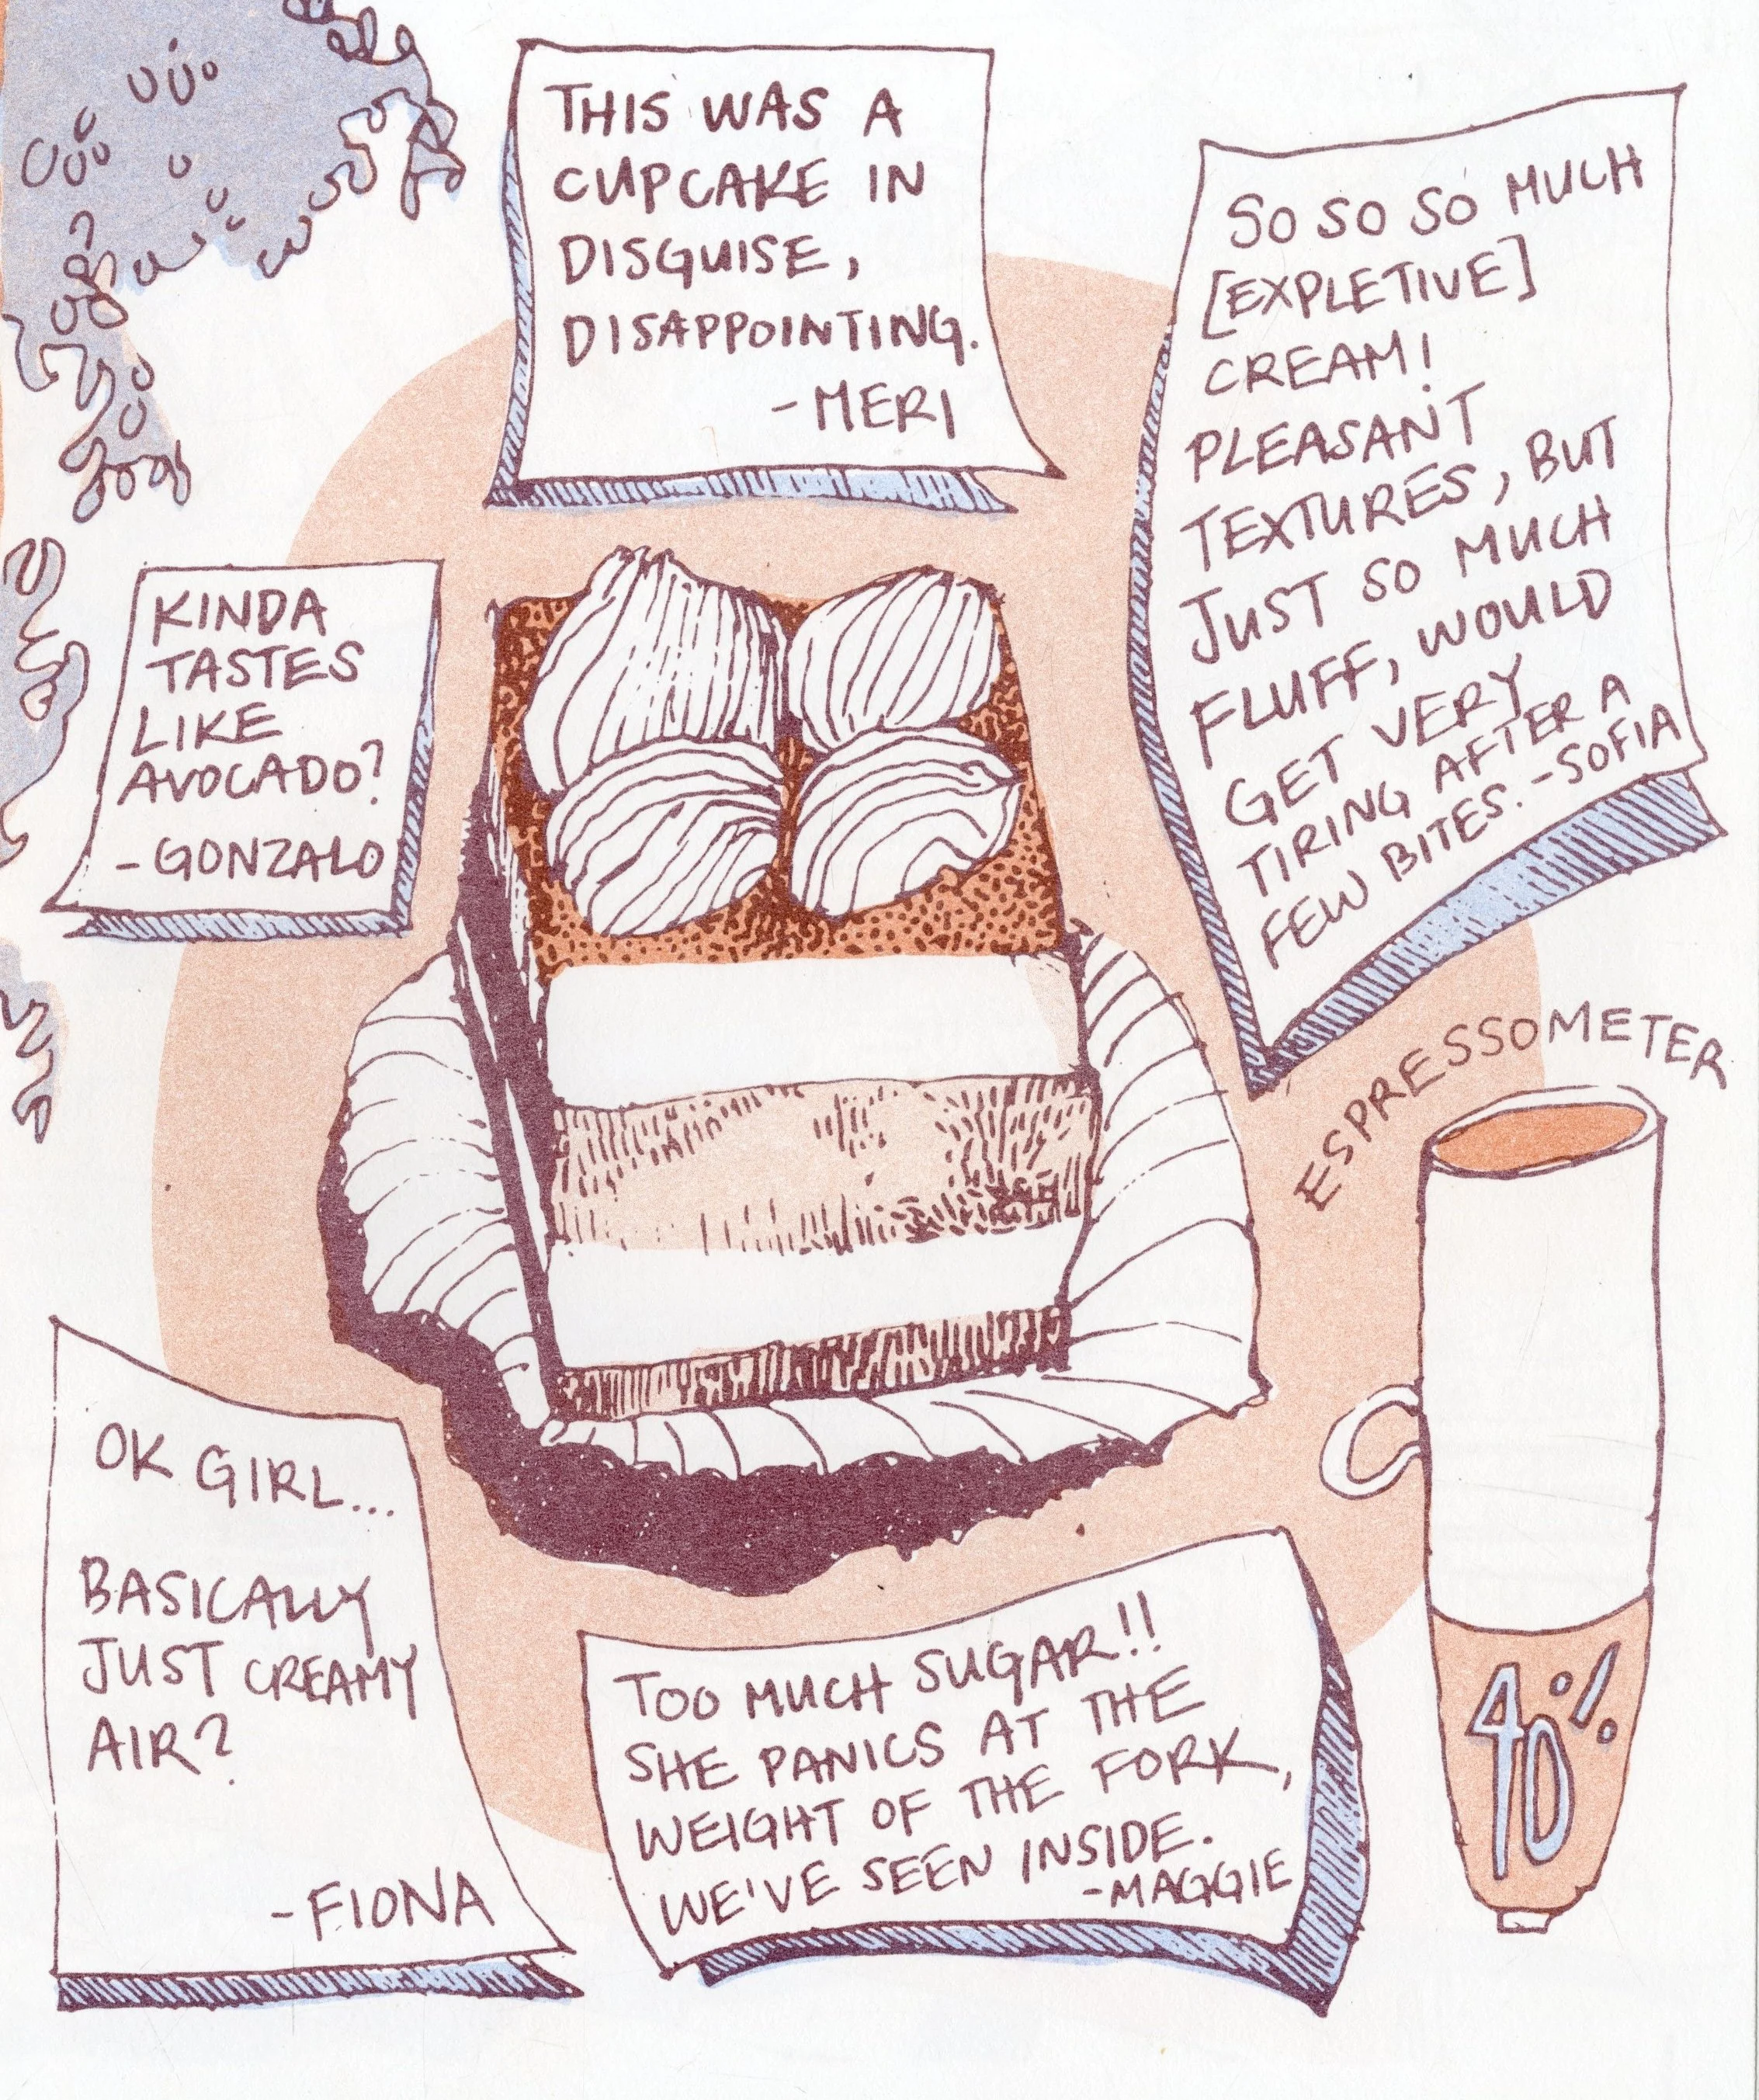 THIS WAS A
CUPCAKE IN
DISGUISE,
DISAPPOINTING.
-MERI
SO SO SO MUCH
[EXPLETIVE]
CREAM!
PLEASANT
TEXTURES, BUT
JUST SO MUCH
FLUFF, WOULD
GET VERY
TIRING AFTER A
FEW BITES. -SOFIA
KINDA
TASTES
LIKE
AVOCADO?
-GONZALO
ESPRESSOMETER
40%
OK GIRL...
BASICALLY
JUST CREAMY
AIR?
-FIONA
TOO MUCH SUGAR!!
SHE PANICS AT THE
WEIGHT OF THE FORK,
WE'VE SEEN INSIDE.
-MAGGIE